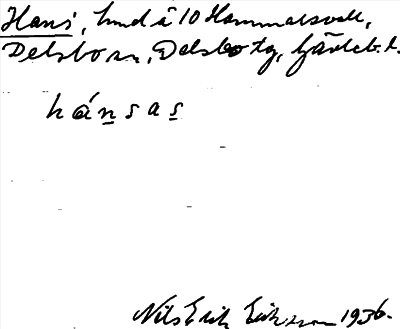 Hans, hmd å 10 Hammarsvall,
Delsbo sn, Delsbo tg, Gävleb. l.
hánsas
Nils Erik Eriksson 1936.